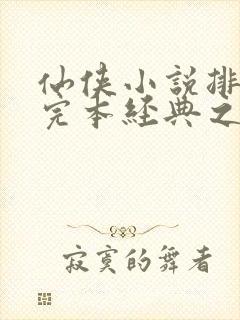 仙侠小説排
完本經典之
寂寞的舞者